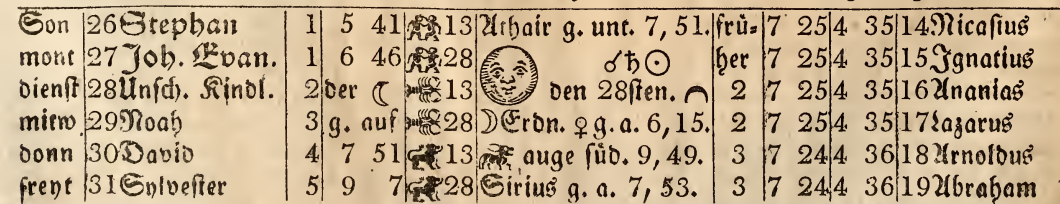 Son 26 Stephan 1 5 41 13 Athair g. unt. 7, 51. frü⸗ 7 25 4 35 14 Nicasius
mont 27 Joh. Evan. 1 6 46 28 ☌♄☉ her 7 25 4 35 15 Ignatius
dienst 28 Unsch. Kindl. 2 der ☾ 13 den 28sten. 2 7 25 4 35 16 Ananias
mitw 29 Noah 3 g. auf 28 ☽ Erdn. ♀ g. a. 6, 15. 2 7 25 4 35 17 Lazarus
donn 30 David 4 7 51 13 auge süd. 9, 49. 3 7 24 4 36 18 Arnoldus
freyt 31 Sylvester 5 9 7 28 Sirius g. a. 7, 53. 3 7 24 4 36 19 Abraham